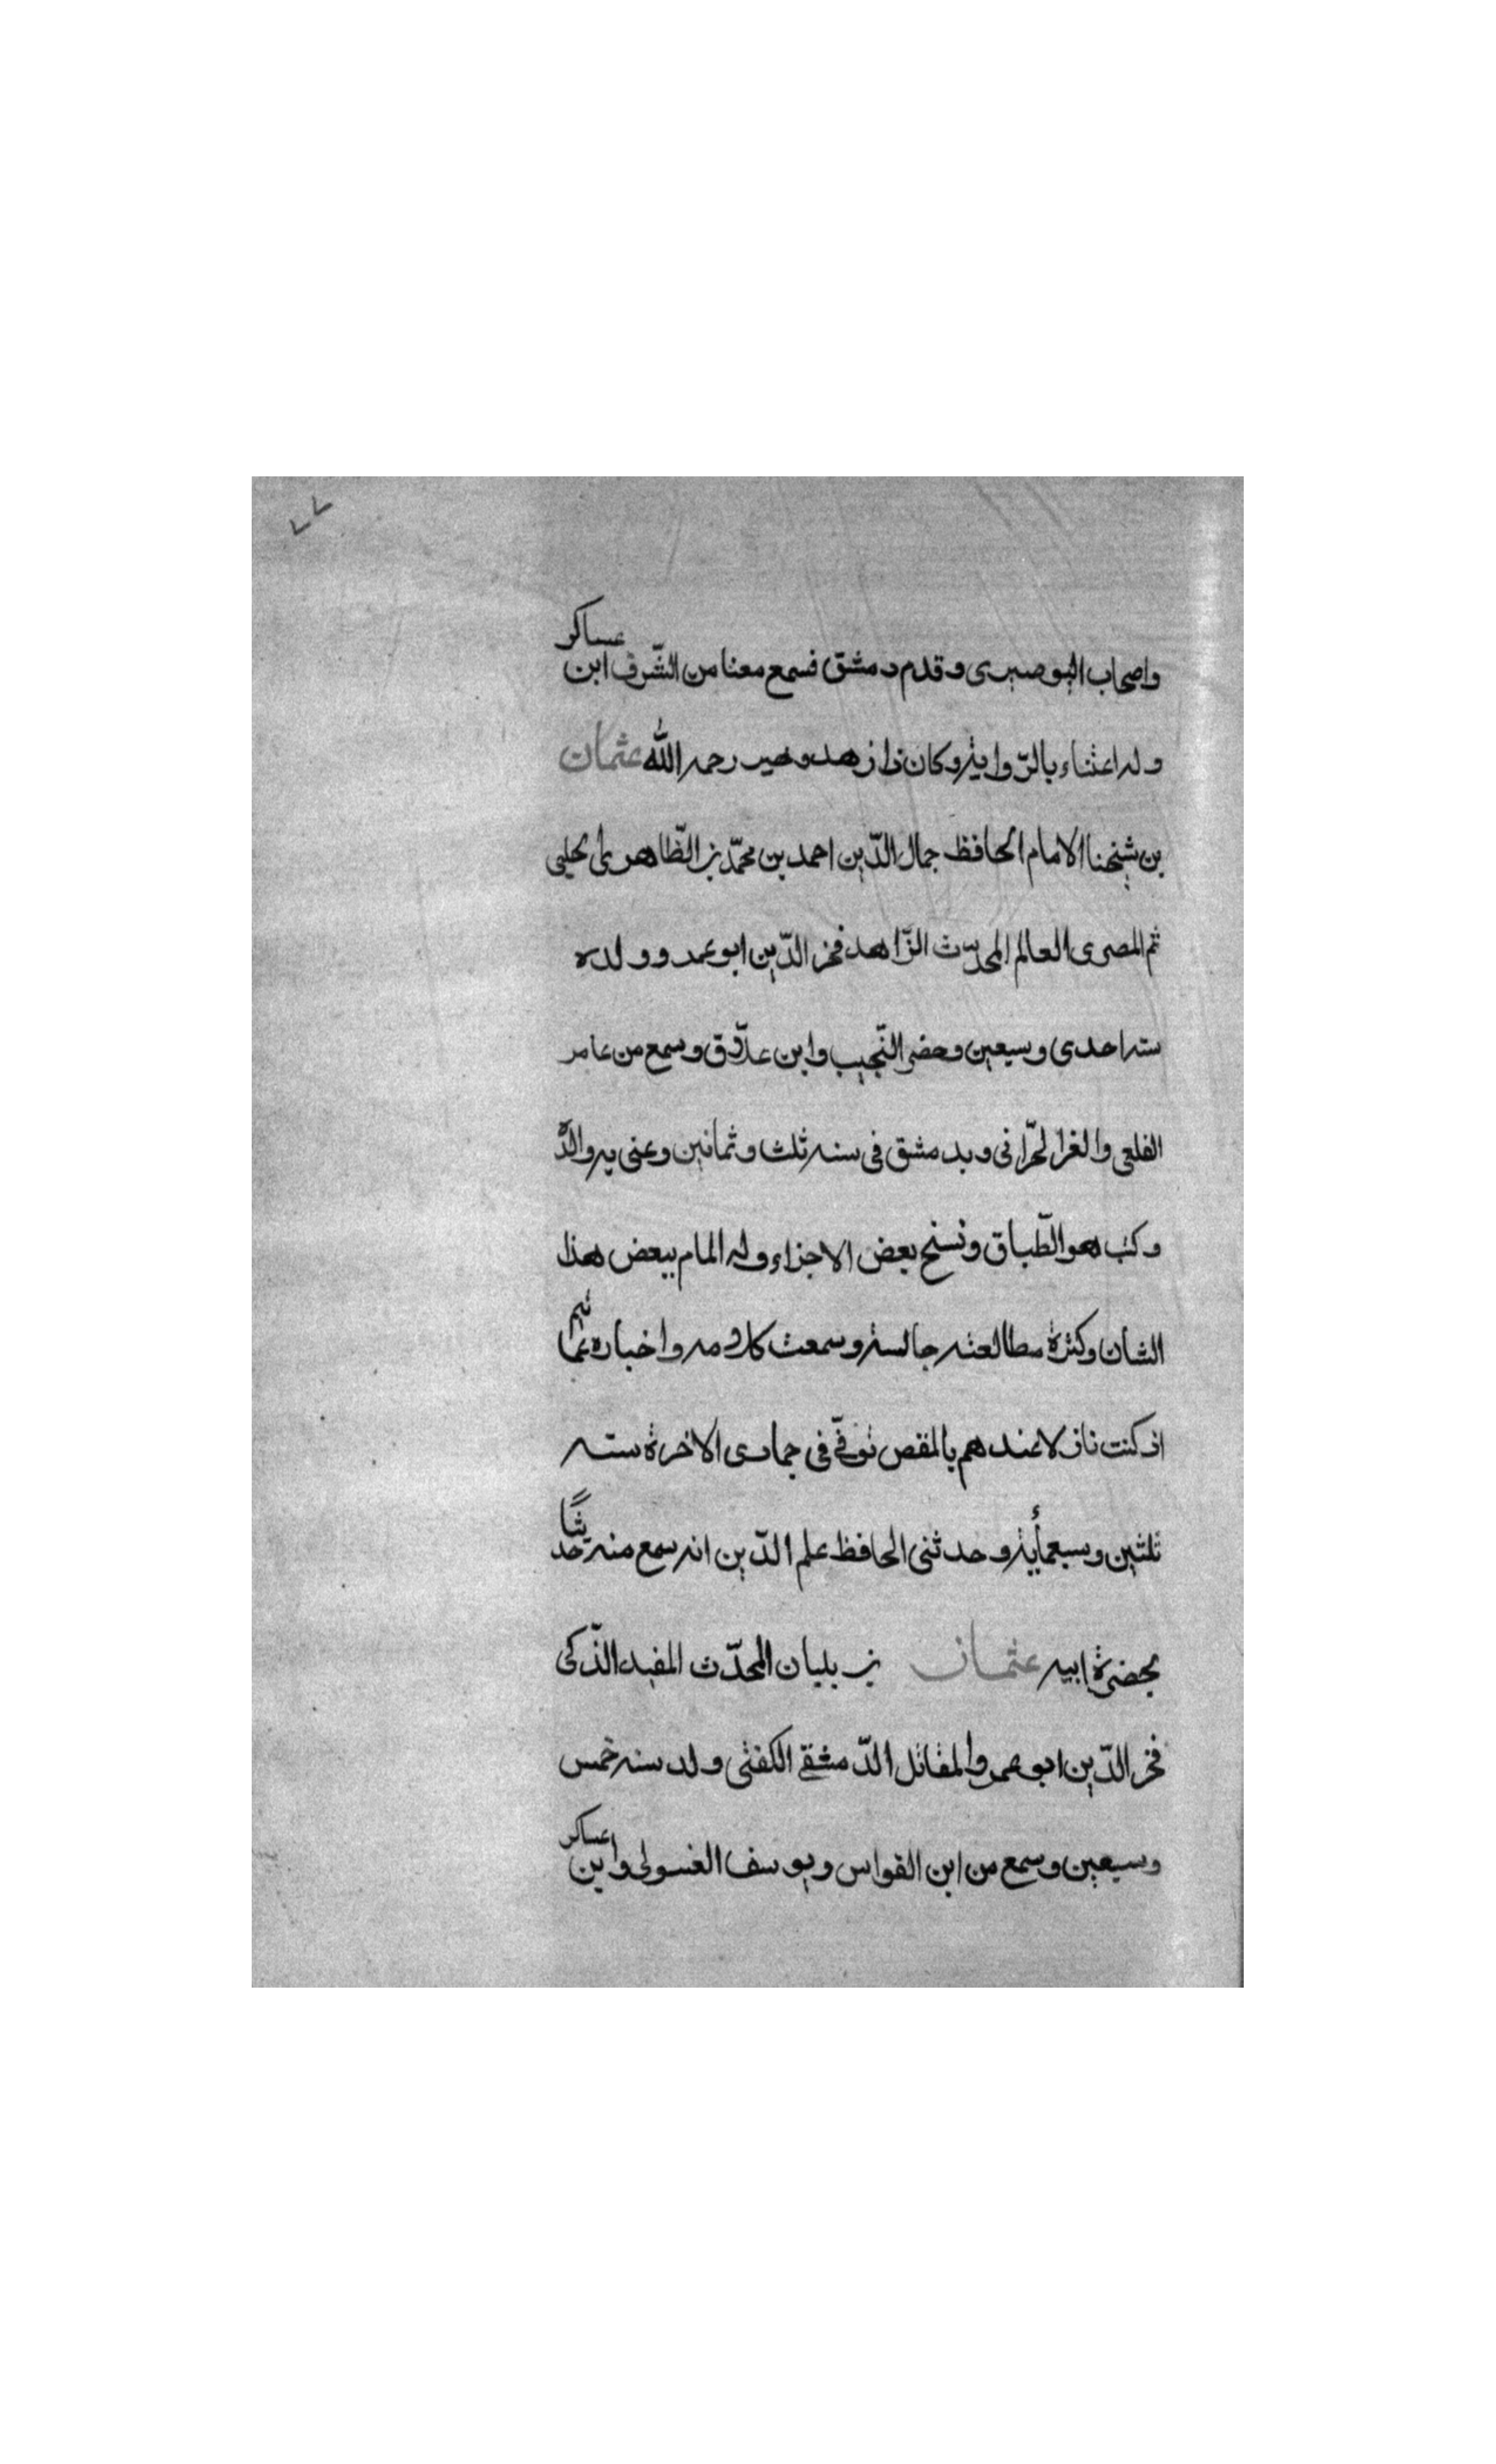 ٧٧
واصحاب البوصيرى وقدم دمشق فسمع معنا من الشّرف ابن عساكر
وله اعتناء بالرّواية وكان ذا زهد وخير رحمه الله عثمان
بن شيخنا الامام الحافظ جمال الدّين احمد بن محمّد بن الظّاهرى الحلبى
ثم المصرى العالم المحدّث الزّاهد فخر الدّين ابو عمرو ولده
سنه احدى وسبعين وحضر النّجيب وابن علّاق وسمع من عامر
القلعى والغر الحرّانى وبدمشق فى سنه ثلث وثمانين وعنى به والدّه
وكتب هو الطّباق ونسخ بعض الاجزاء وله المام ببعض هذا
الشان وكثرة مطالعته جالسته وسمعت كلامه واخباره ثم
اذ كنت نازلا عندهم بالمقص توفّى فى جمادى الاخرة سنه
ثلثين وسبعمأية وحدثنى الحافظ علم الدّين انه سمع منه حديثًا
بحضرة ابيه عثمان بن بلبان المحدّث المفيد الذّكى
فخر الدّين ابو عمرو المقاتل الدّمشقى الكفتى ولد سنه خمس
وسبعين وسمع من ابن القواس ويوسف الغسولى وابن عساكر